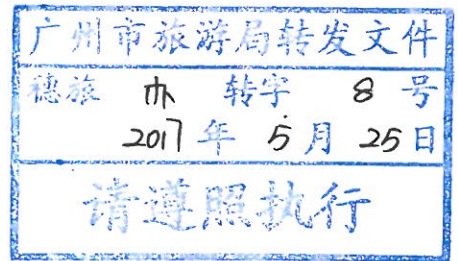 广州市旅游局转发文件
穗旅 办 转字 8 号
2017 年 5 月 25 日
请遵照执行